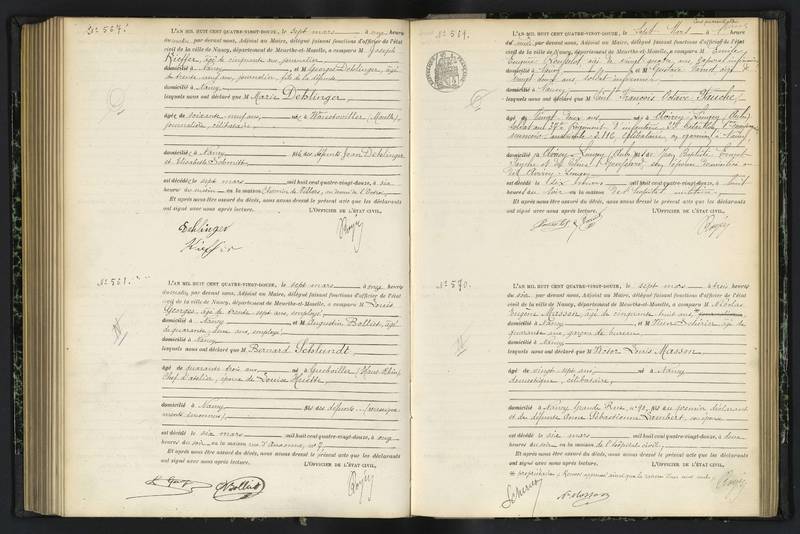 No 567.
L'AN MIL HUIT CENT QUATRE-VINGT-DOUZE, le sept mars à onze heures
du matin, par devant nous, Adjoint au Maire, délégué faisant fonctions d'officier de l'état
civil de la ville de Nancy, département de Meurthe-et-Moselle, a comparu M Joseph
Kieffer, âgé de cinquante ans, journalier
domicilié à Nancy et M Georges Dehlinger, âgé
de trente neuf ans, journalier, fils de la défunte
domicilié à Nancy
lesquels nous ont déclaré que M Marie Dehlinger,
âgée de soixante neuf ans, née à
journalière, célibataire,
domiciliée à Nancy fille des défunts Jean Dehlinger
et Elisabeth Schmitt,
est décédée le sept mars mil huit cent quatre-vingt-douze, à six
heures du matin en la maison chemin de Villers,
Et après nous être assuré du décès, nous avons dressé le présent acte que les déclarants
ont signé avec nous après lecture. L'OFFICIER DE L'ÉTAT CIVIL,
Kieffer
No 568.
L'AN MIL HUIT CENT QUATRE-VINGT-DOUZE, le sept mars à onze heures
du matin, par devant nous, Adjoint au Maire, délégué faisant fonctions d'officier de l'état
civil de la ville de Nancy, département de Meurthe-et-Moselle, a comparu M Louis
Georges, âgé de trente sept ans, employé
domicilié à Nancy et M Augustin Bolliet, âgé
de quarante deux ans, employé
domicilié à Nancy
lesquels nous ont déclaré que M Bernard Schlundt
âgé de quarante trois ans, né à Guebwiller (Haut-Rhin)
chef d'atelier, époux de Louise
domicilié à Nancy fils des défunts (renseigne
ments inconnus)
est décédé le six mars mil huit cent quatre-vingt-douze, à onze
heures du soir en la maison rue d'Auxonne, no 7
Et après nous être assuré du décès, nous avons dressé le présent acte que les déclarants
ont signé avec nous après lecture. L'OFFICIER DE L'ÉTAT CIVIL,
No 569.
L'AN MIL HUIT CENT QUATRE-VINGT-DOUZE, le sept mars à
par devant nous, Adjoint au Maire, délégué faisant fonctions d'officier de l'état
civil de la ville de Nancy, département de Meurthe-et-Moselle, a comparu M Emile
Eugène âgé de vingt quatre ans, caporal infirmier
domicilié à Nancy et M Gustave âgé de
vingt deux ans, soldat infirmier
domicilié à Nancy
lesquels nous ont déclaré que M Paul François Octave
âgé de vingt deux ans né à (Aube)
soldat au régiment d'infanterie,
célibataire, en garnison à Nancy,
domicilié à (Aube) fils de Jean Baptiste
est décédé le six mars mil huit cent quatre-vingt-douze, à huit
heures du soir en la maison de l'hôpital militaire
Et après nous être assuré du décès, nous avons dressé le présent acte que les déclarants
ont signé avec nous après lecture. L'OFFICIER DE L'ÉTAT CIVIL,
No 570.
L'AN MIL HUIT CENT QUATRE-VINGT-DOUZE, le sept mars à trois heures
du soir, par devant nous, Adjoint au Maire, délégué faisant fonctions d'officier de l'état
civil de la ville de Nancy, département de Meurthe-et-Moselle, a comparu M Nicolas
Eugène Masson, âgé de cinquante huit ans
domicilié à Nancy et M âgé de
quarante ans, garçon de bureau
domicilié à Nancy
lesquels nous ont déclaré que M Victor Louis Masson
âgé de vingt sept ans, né à Nancy
domestique, célibataire,
domicilié à Nancy Grande Rue, no 92, fils du premier déclarant
et de défunte Anne Sébastienne Lambert,
est décédé le six mars mil huit cent quatre-vingt-douze, à deux
heures du soir en la maison de l'hôpital civil
Et après nous être assuré du décès, nous avons dressé le présent acte que les déclarants
ont signé avec nous après lecture. L'OFFICIER DE L'ÉTAT CIVIL,
Masson